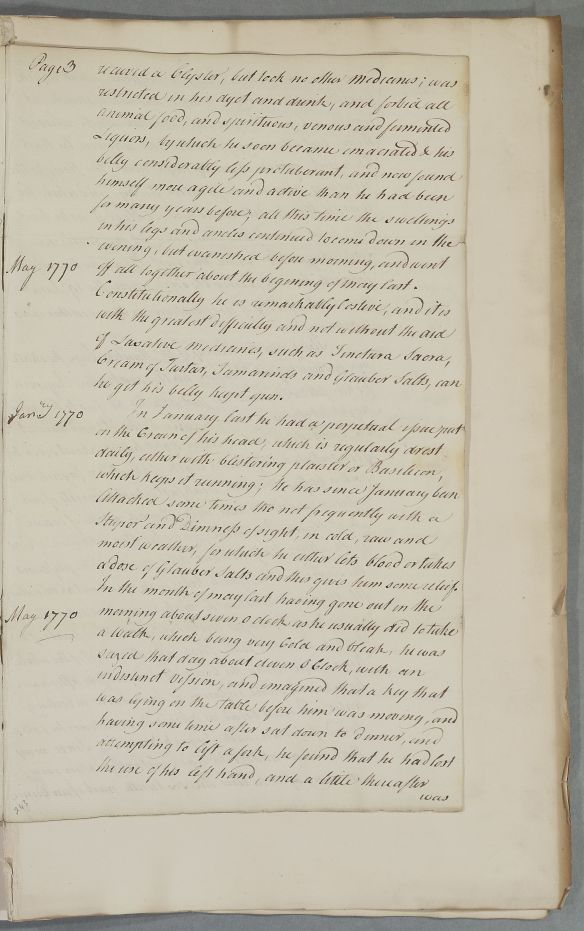 Page 3
received a Clyster, but took no other medicines; was
restricted in his dyet and drink, and forbid all
animal food, and spirituous, venous and fermented
Liquors, by which he soon became emaciated & his
belly considerably less protuberant, and now found
himself more agile and active than he had been
for many years before; all this time the swellings
in his legs and ancles continued to come down in the
evening, but evanished before morning, and went
May 1770
off all together about the begining of may last.
Constitutionally he is remarkably Costive, and it is
with the greatest difficulty and not without the aid
of Laxative medicines, such as Tinctura Sacra,
Cream of Tartar, Tamarinds and Glauber Salts, can
he get his belly kept open.
Janry 1770
In January last he had a perpetual issue put
on the Crown of his head, which is regularly drest
daily, either with blistering plaister or Basilicon,
which keeps it running; he has since January been
attacked some times tho not frequently with a
Stupor and Dimness of sight, in cold, raw and
moist weather, for which he either lets blood or takes
a dose of Glauber Salts and this gives him some relief.
In the month of may last having gone out in the
May 1770
morning about seven o clock as he usually did to take
a Walk, which being very Cold and bleak, he was
seized that day about eleven o Clock, with an
indistinct vission, and imagined that a key that
was lying on the table before him was moving, and
having some time after sat down to dinner, and
attempting to lift a fork, he found that he had lost
the use of his left hand, and a little thereafter
was